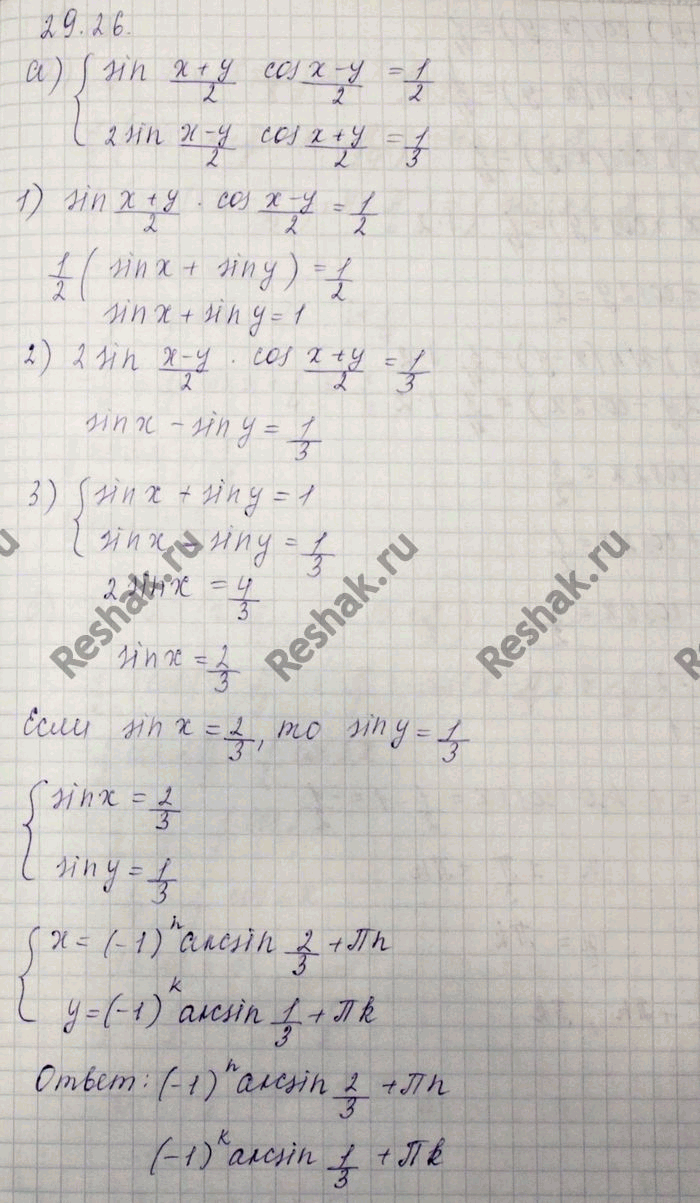 29.26.
а) { sin (x+y)/2 cos (x-y)/2 = 1/2
2 sin (x-y)/2 cos (x+y)/2 = 1/3
1) sin (x+y)/2 · cos (x-y)/2 = 1/2
1/2 ( sin x + sin y ) = 1/2
sin x + sin y = 1
2) 2 sin (x-y)/2 · cos (x+y)/2 = 1/3
sin x - sin y = 1/3
3) { sin x + sin y = 1
sin x - sin y = 1/3
2 sin x = 4/3
sin x = 2/3
Если sin x = 2/3, то sin y = 1/3
{ sin x = 2/3
sin y = 1/3
{ x = (-1)^n arcsin 2/3 + Пn
y = (-1)^k arcsin 1/3 + Пk
Ответ: (-1)^n arcsin 2/3 + Пn
(-1)^k arcsin 1/3 + Пk
Reshak.ru
Reshak.ru
Reshak.ru